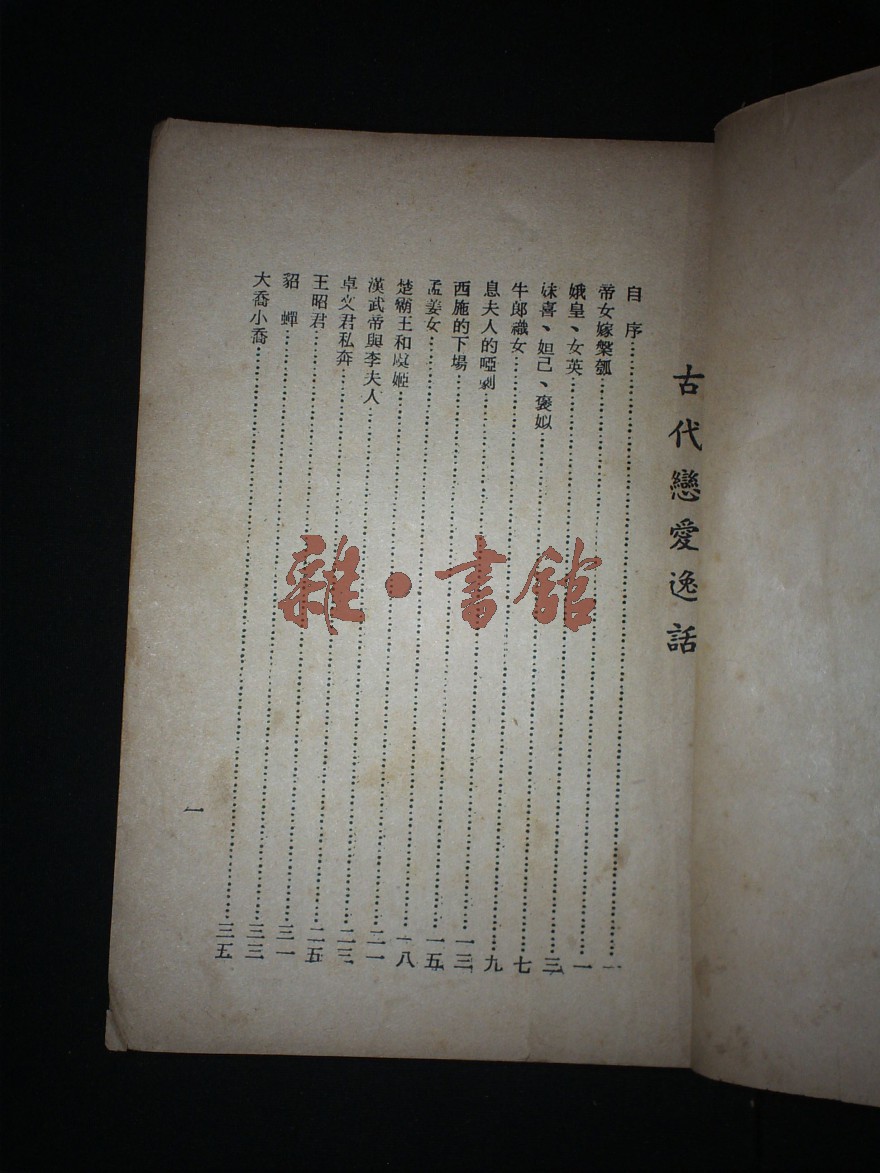 古代戀愛逸話
自序……一
帝女嫁槃瓠……一
娥皇、女英……三
妹喜、妲己、褒姒……七
牛郎織女……九
息夫人的啞劇……一三
西施的下場……一五
孟姜女……一八
楚霸王和虞姬……二一
漢武帝與李夫人……二三
卓文君私奔……二五
王昭君……三一
貂蟬……三三
大喬小喬……三五
一
雜·書館